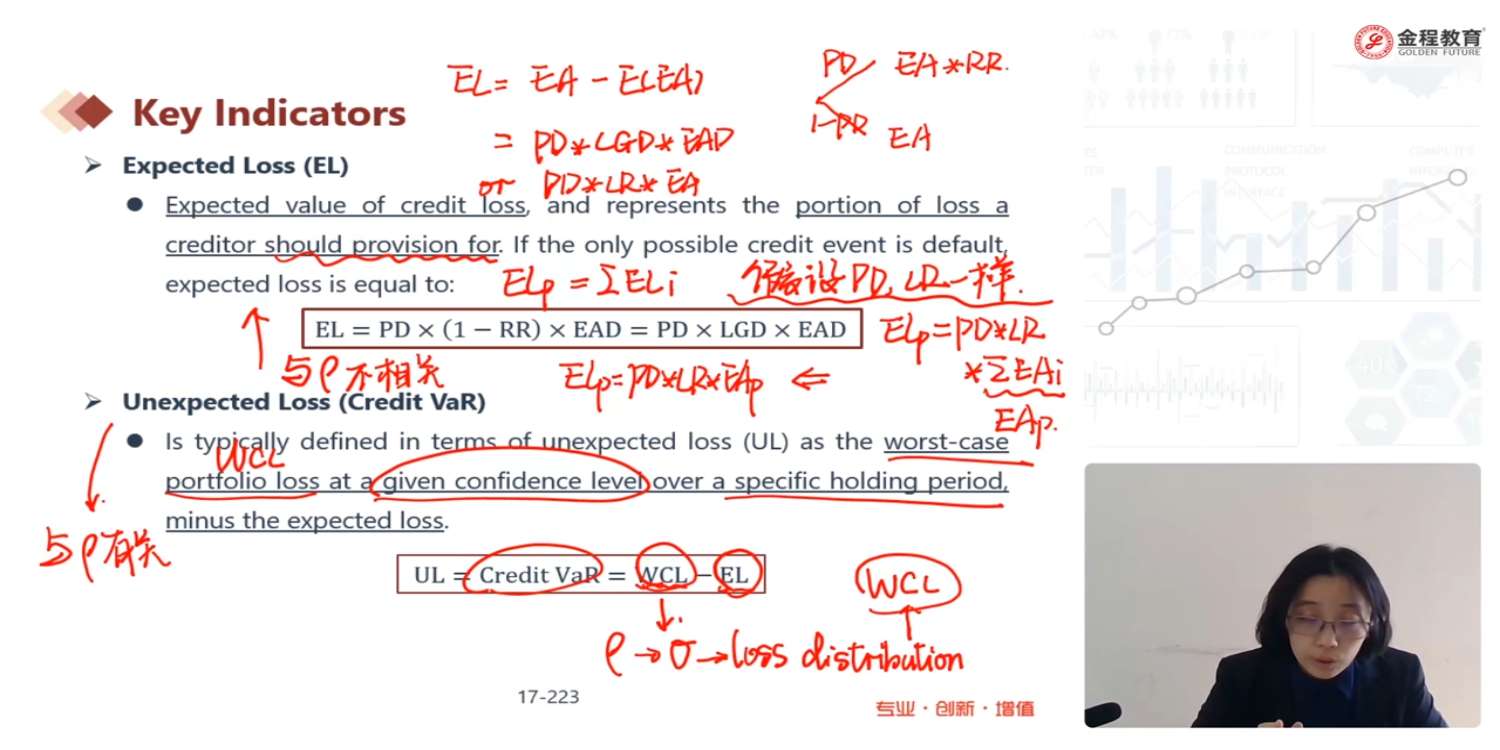 金程教育
GOLDEN FUTURE
EL = EA - E(EA)
PD EA*RR.
1-PR EA
Key Indicators
= PD*LGD*EAD
➢ Expected Loss (EL)
or PD*LR*EA
● Expected value of credit loss, and represents the portion of loss a
creditor should provision for. If the only possible credit event is default,
expected loss is equal to:
ELp = ΣELi 假设PD, LR一样.
EL = PD × (1 − RR) × EAD = PD × LGD × EAD
ELp=PD*LR
*ΣEAi
EAp.
与ρ不相关
ELp=PD*LR*EAp ⇐
➢ Unexpected Loss (Credit VaR)
● Is typically defined in terms of unexpected loss (UL) as the worst-case
WCL
portfolio loss at a given confidence level over a specific holding period,
minus the expected loss.
与ρ有关
UL = Credit VaR = WCL − EL
WCL
ρ → σ → loss distribution
17-223
专业·创新·增值